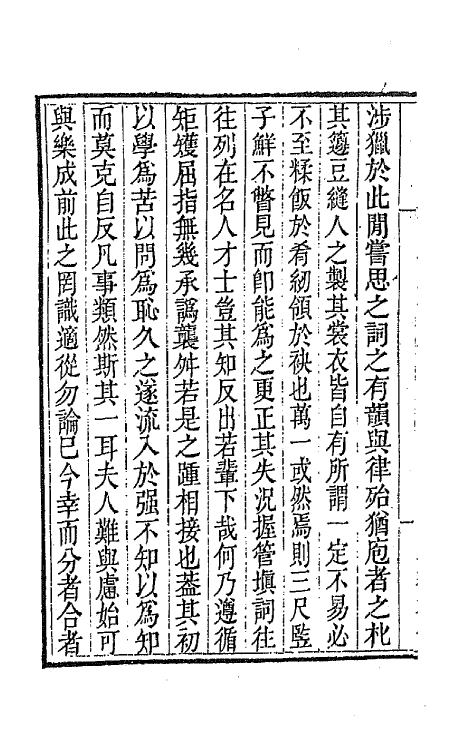 涉獵於此閒嘗思之詞之有韻與律殆猶庖者之朼
其籩豆縫人之製其裳衣皆自有所謂一定不易必
不至糅飯於肴紉領於袂也萬一或然焉則三尺豎
子鮮不瞥見而卽能爲之更正其失況握管塡詞往
往列在名人才士豈其知反出若輩下哉何乃遵循
矩矱屈指無幾承譌襲舛若是之踵相接也葢其初
以學爲苦以問爲恥久之遂流入於强不知以爲知
而莫克自反凡事類然斯其一耳夫人難與慮始可
與樂成前此之罔識適從勿論已今幸而分者合者